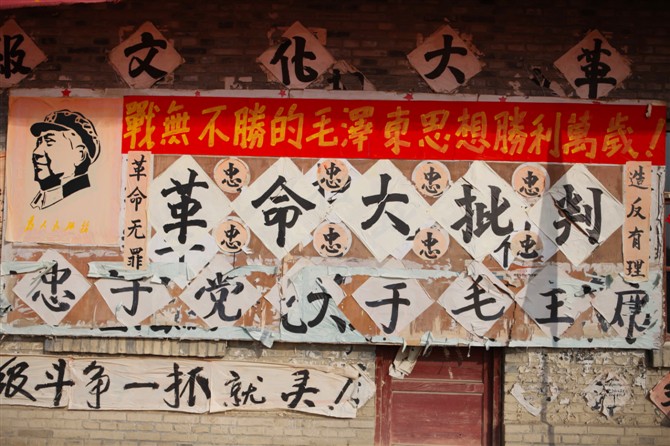 报文化大革
戰無不勝的毛澤東思想勝利萬歲！
革命无罪
忠 忠 忠 忠
革命大批判
忠 忠 忠
造反有理
忠于党 于毛主席
级斗争一抓就灵！